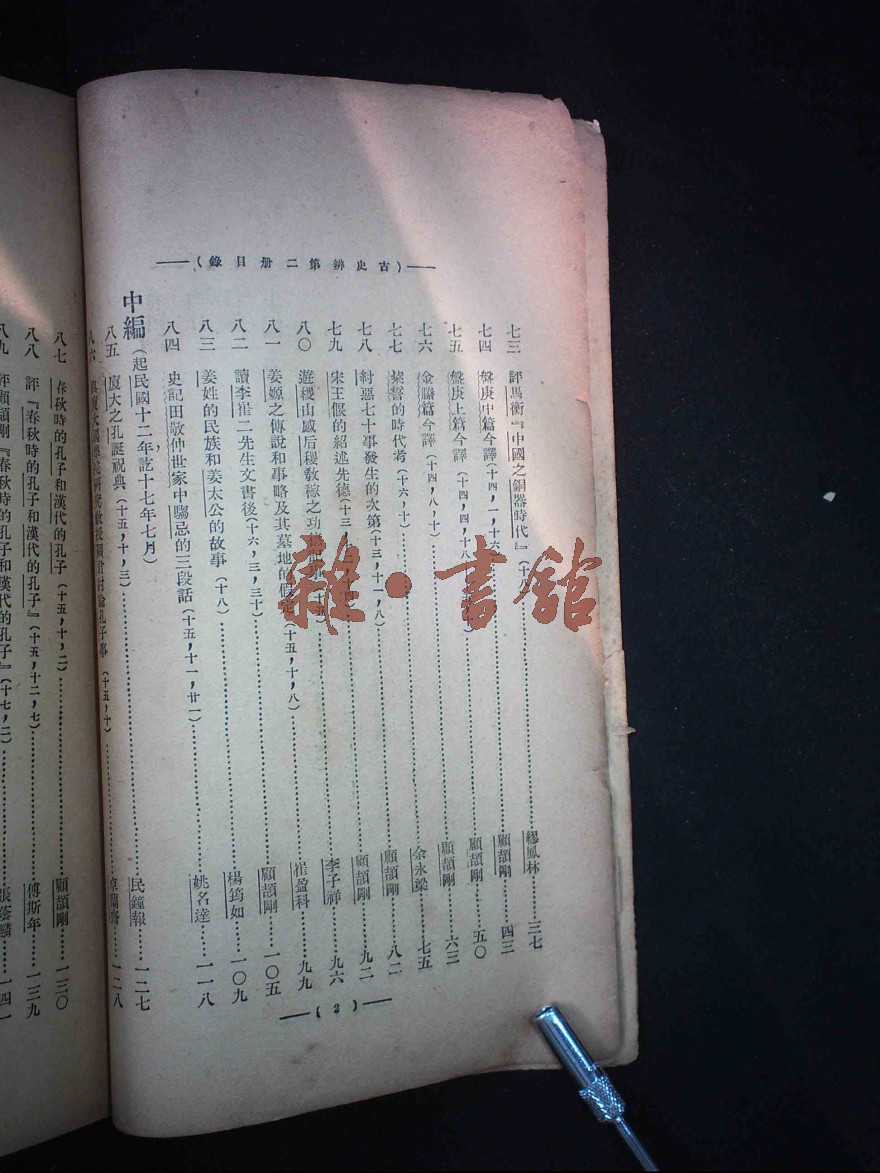 ——（古史辨第二册目錄）——
七三　評馬衡『中國之銅器時代』（十……繆鳳林……三七
七四　盤庚中篇今譯（十四，一，十六……顧頡剛……四三
七五　盤庚上篇今譯（十四，四，十八……顧頡剛……五〇
七六　金縢篇今譯（十四，八，十）……顧頡剛……六三
七七　粊誓的時代考（十六，十）……余永梁……七五
七八　紂惡七十事發生的次第（十三，十一，八）……顧頡剛……八二
七九　宋王偃的紹述先德（十三……顧頡剛……九二
八〇　遊稷山感后稷教稼之功……李子祥……九六
八一　姜嫄之傳說和事略及其墓地的假定（十五，十，八）……崔盈科……九九
八二　讀李崔二先生文書後（十六，三，三十）……顧頡剛……一〇五
八三　姜姓的民族和姜太公的故事（十八）……楊筠如……一〇九
八四　史記田敬仲世家中騶忌的三段話（十五，十一，廿一）……姚名達……一一八
中編（起民國十二年訖十七年七月）
八五　廈大之孔誕祝典（十五，十，三）……民鐘報……一二七
八六　論孔子事（十五，十）……一二八
八七　春秋時的孔子和漢代的孔子（十五，十，二）……顧頡剛……一三〇
八八　評『春秋時的孔子和漢代的孔子』（十五，十二，七）……傅斯年……一三九
八九　評顧頡剛『春秋時的孔子和漢代的孔子』（十七，二）……張蔭麟……一四一
——（2）——
雜·書館